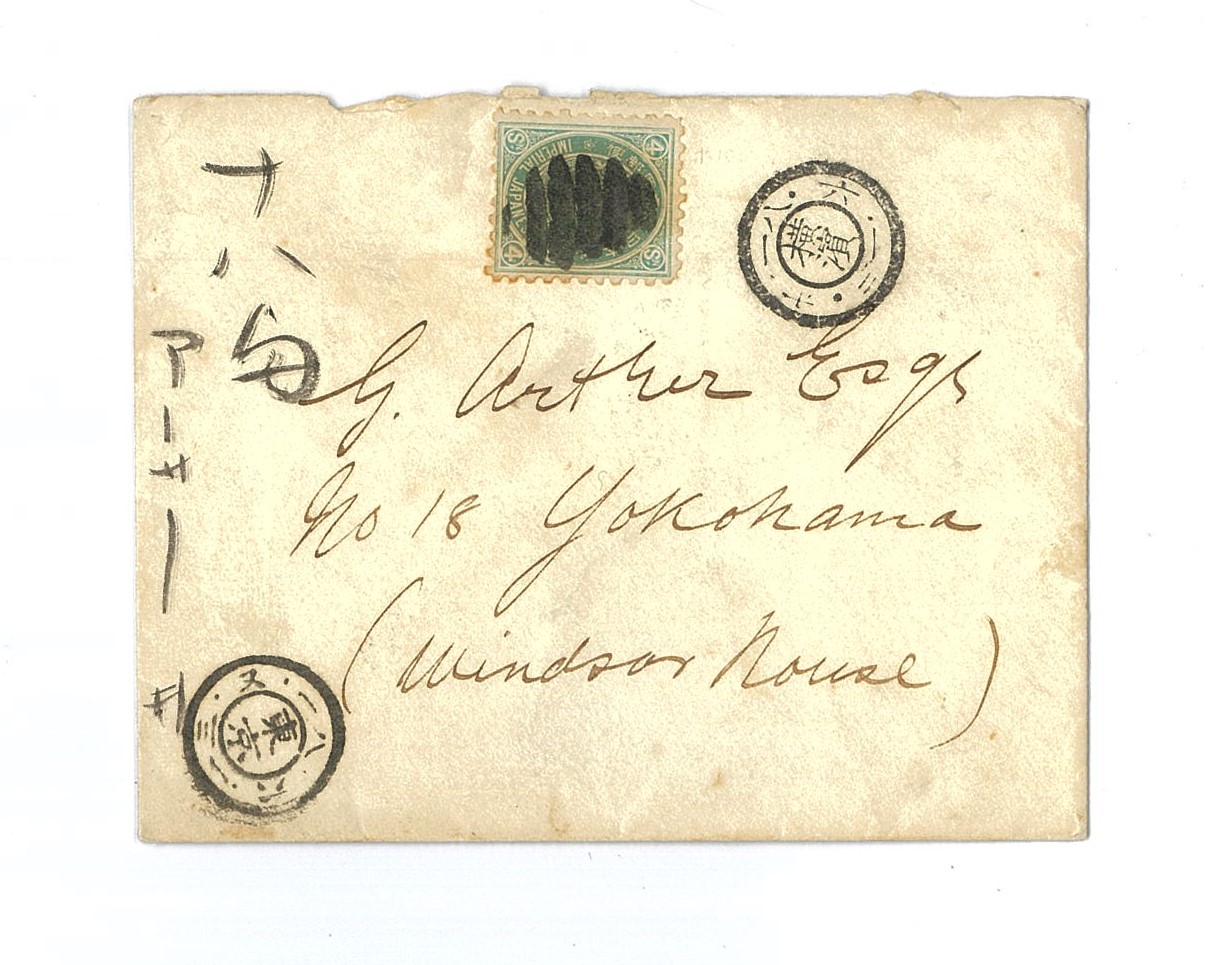 十八番
アーサー
G. Arthur Esqr
No 18 Yokohama
(Windsor House)
IMPERIAL JAPAN
4 S
4 S
横濱
東京